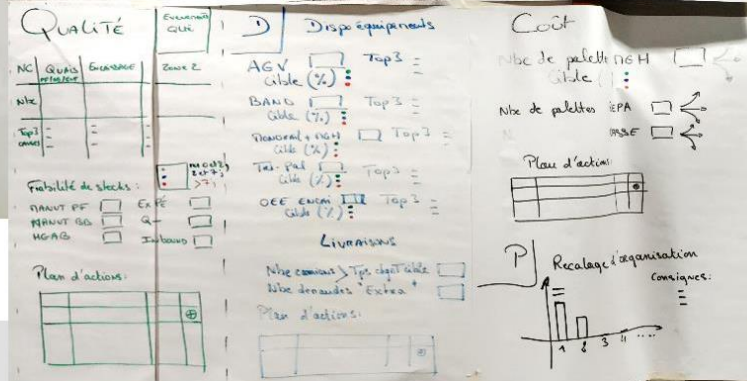 QUALITÉ
Evenements
QUE
NC
QUAIS
ENCAISSAGE
Zone 2
Nbre
Top 3
causes
Fiabilité de stocks :
MANUT PF
EXPÉ
MANUT BB
Q
MGAB
Inbound
Plan d'actions :
D
Dispo équipements
AGV
Top 3
Cible (%)
BAND
Top 3
Cible (%)
MONORAIL + MGH
Top 3
Cible (%)
Top 3
Cible (%)
OEE ENCAI
Top 3
Cible (%)
LIVRAISONS
Nbre camions > Tps chgt cible
Nbre demandes "Extra"
Plan d'actions :
Coût
Nbre de palettes MGH
Cible
Nbre de palettes EPA
CASSE
Plan d'actions
P
Recalage d'organisation
Consignes :
1 2 3 4 ....